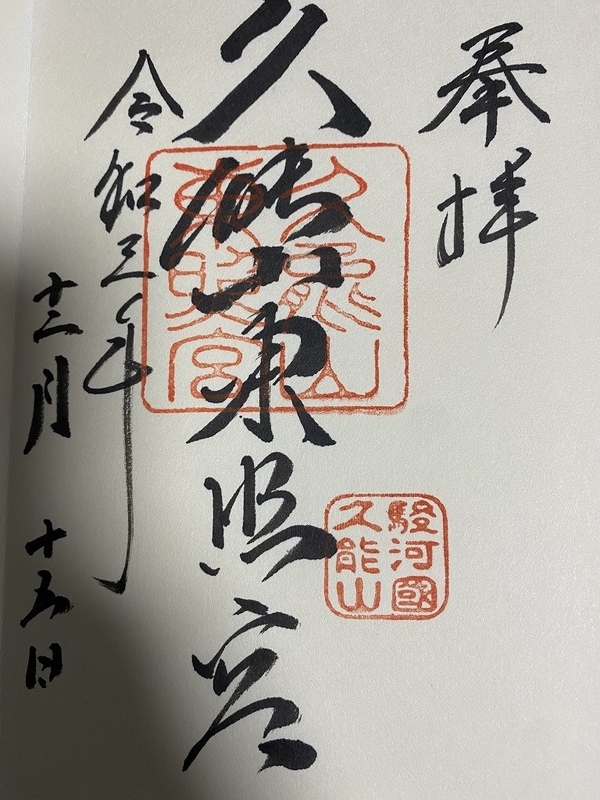 奉拝
久能山東照宮
久能山
東照宮
駿河國
久能山
令和三年
十二月十五日